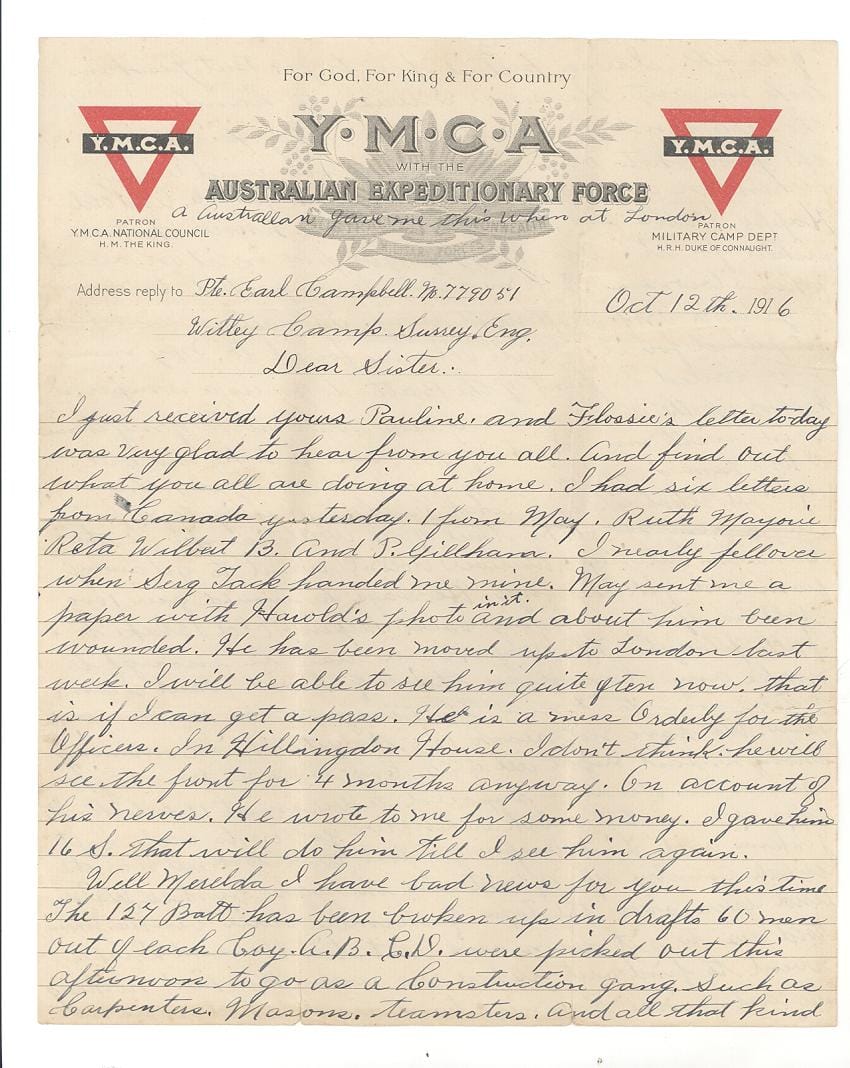 For God, For King & For Country
Y.M.C.A.
Y·M·C·A
Y.M.C.A.
WITH THE
AUSTRALIAN EXPEDITIONARY FORCE
a Australian gave me this when at London
PATRON
Y.M.C.A. NATIONAL COUNCIL
H. M. THE KING.
PATRON
MILITARY CAMP DEPT
H.R.H. DUKE OF CONNAUGHT.
Address reply to Pte. Earl Campbell. No. 779051
Oct 12th. 1916
Witley Camp. Surrey. Eng.
Dear Sister:.
I just received yours Pauline. and Flossie's letter today
was very glad to hear from you all. And find out
what you all are doing at home. I had six letters
from Canada yesterday. 1 from May. Ruth Marjorie
Reta Wilbert B. And P. Gillham. I nearly fell over
when Serg Jack handed me mine. May sent me a
paper with Harold's photo in it. and about him been
wounded. He has been moved up to London last
week. I will be able to see him quite often now. that
is if I can get a pass. He is a mess Orderly for the
Officers. In Hillingdon House. I don't think. he will
see the front for 4 months anyway. On account of
his nerves. He wrote to me for some money. I gave him
16 S. that will do him till I see him again.
Well Merilda I have bad news for you this time
The 127 Batt has been broken up in drafts 60 men
out of each Coy. A. B. C. D. were picked out this
afternoon to go as a Construction gang. Such as
Carpenters. Masons. teamsters. And all that kind